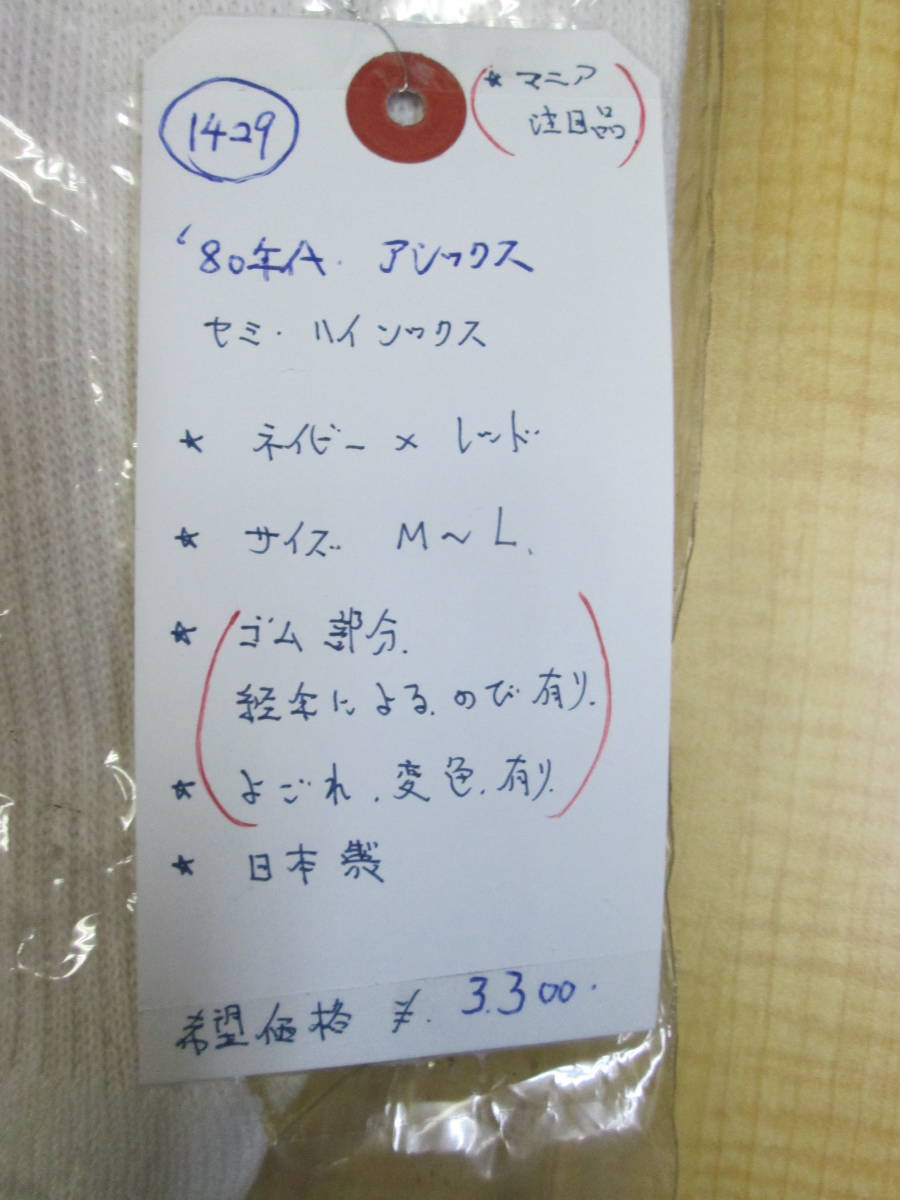 1429
★ マニア
注目品
'80年代. アシックス
セミ・ハイソックス
★ ネイビー × レッド
★ サイズ M～L.
★ ゴム部分.
経年による.のび有り.
★ よごれ.変色.有り.
★ 日本製
希望価格 ¥. 3.300.